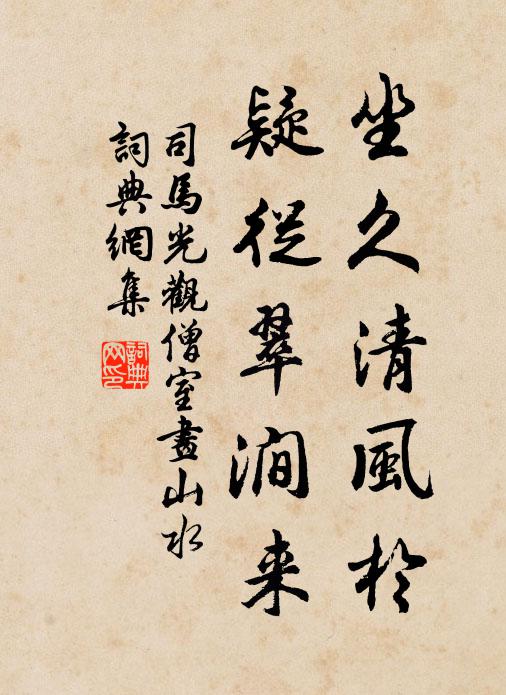 坐久清風於
疑從翠澗来
司馬光觀僧室畫山水
詞典網集
詞典
网印